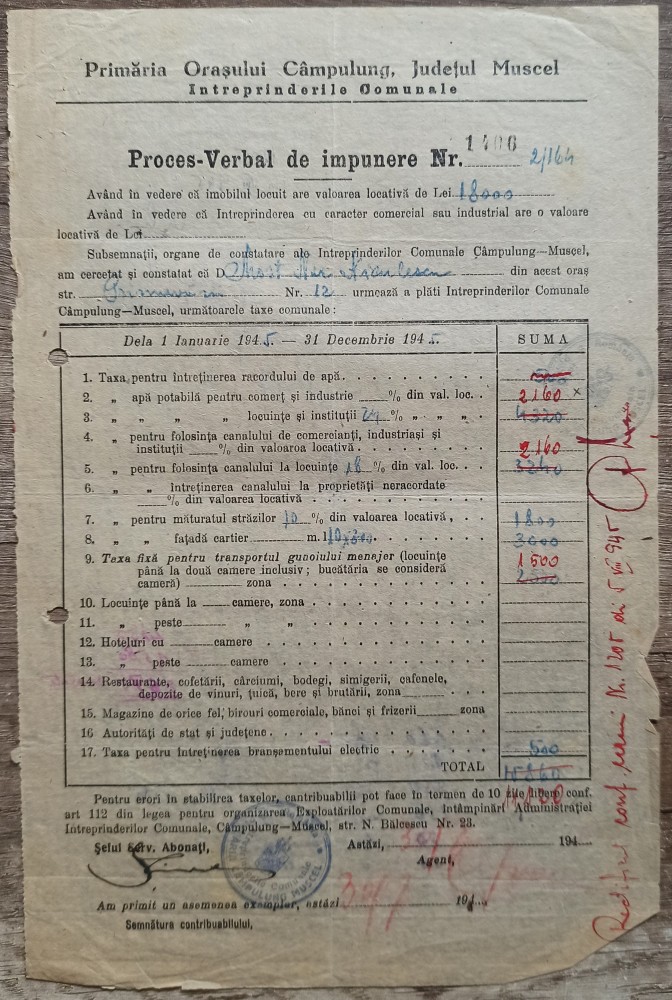 Primăria Orașului Câmpulung, Județul Muscel
Intreprinderile Comunale
Proces-Verbal de impunere Nr. 1406 2/164
Având în vedere că imobilul locuit are valoarea locativă de Lei 18000
Având în vedere că Intreprinderea cu caracter comercial sau industrial are o valoare
locativă de Lei
Subsemnații, organe de constatare ale Intreprinderilor Comunale Câmpulung—Muscel,
am cercetat și constatat că D din acest oraș
str. Nr. 12 urmează a plăti Intreprinderilor Comunale
Câmpulung—Muscel, următoarele taxe comunale:
Dela 1 Ianuarie 1945. — 31 Decembrie 194 SUMA
1. Taxa pentru întreținerea racordului de apă 500
2. „ apă potabilă pentru comerț și industrie % din val. loc. 2160 x
3. „ „ „ locuințe și instituții 24 % „ „ „ 4320
4. „ pentru folosința canalului de comercianți, industriași și
instituții % din valoarea locativă 2160
5. „ pentru folosința canalului la locuințe 18 % din val. loc. 3240
6. „ „ întreținerea canalului la proprietăți neracordate
% din valoarea locativă
7. „ pentru măturatul străzilor 10 % din valoarea locativă, 1800
8. „ „ fațadă cartier m. l 10x300 3000
9. Taxa fixă pentru transportul gunoiului menajer (locuințe 1500
până la două camere inclusiv; bucătăria se consideră
cameră) zona
10. Locuințe până la camere, zona
11. „ peste „ „
12. Hoteluri cu camere
13. „ peste camere
14. Restaurante, cofetării, cârciumi, bodegi, simigerii, cafenele,
depozite de vinuri, țuică, bere și brutării, zona
15. Magazine de orice fel, birouri comerciale, bănci și frizerii zona
16 Autorități de stat și județene
17. Taxa pentru întreținerea branșamentului electric 500
TOTAL 15860
Pentru erori în stabilirea taxelor, contribuabilii pot face în termen de 10 zile libere conf.
art 112 din legea pentru organizarea Exploatărilor Comunale, întâmpinări Administrației
Intreprinderilor Comunale, Câmpulung—Muscel, str. N. Bălcescu Nr. 23.
Șeful Serv. Abonați, Astăzi, 194
Agent,
Am primit un asemenea exemplar, astăzi 30/7 194
Semnătura contribuabilului,
CÂMPULUNG MUSCEL
conf. Nr. 1205 din 5 VII 945